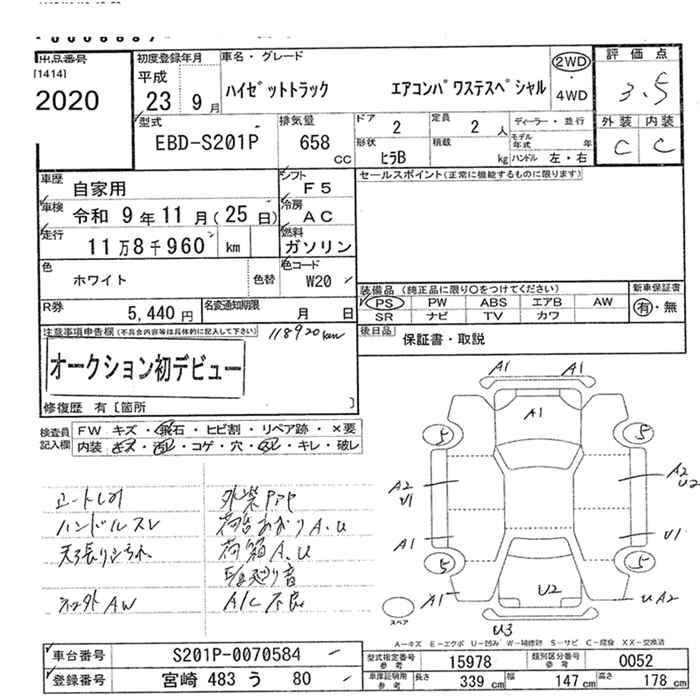 出品番号
[1414]
2020
初度登録年月
平成
23 9月
車名・グレード
ハイゼットトラック エアコンパワステスペシャル
2WD
・
4WD
評価点
3.5
外装 内装
C C
型式
EBD-S201P
排気量
658
CC
ドア
2
定員
2 人
形状
ヒラB
積載
kg
ディーラー・並行
モデル年式 年
ハンドル 左・右
車歴
自家用
シフト
F5
車検
令和 9年11月(25日)
冷房
AC
走行
11万8千960 km
燃料
ガソリン
色
ホワイト
色替
色コード
W20
R券
5,440円
名変通知期限
月 日
セールスポイント(正常に機能するものに限ります)
装備品(純正品に限り○をつけてください)
PS PW ABS エアB AW
SR ナビ TV カワ
新車保証書
有・無
後日品
保証書・取説
注意事項申告欄(不具合内容等は具体的に記入して下さい)
118920km
オークション初デビュー
修復歴 有[箇所 ]
検査員
記入欄
FW キズ・飛石・ヒビ割・リペア跡・×要
内装 キズ・汚れ・コゲ・穴・スレ・キレ・破レ
ハンドルスレ
外装PPP
荷台あおりA.U
荷箱A.U
社外AW
A/C不良
A1 A1
A1
5 5
A2
U1
A2
U2
A1
U1
5 5
A1
U2
U A2
U3
スペア
A−キズ E−エクボ U−凹み W−補修跡 S−サビ C−腐食 XX−交換済
車台番号
S201P-0070584
登録番号
宮崎 483 う 80
型式指定番号
参考
15978
類別区分番号
参考
0052
車庫証明用
参考
長さ
339 cm
幅
147 cm
高さ
178 cm